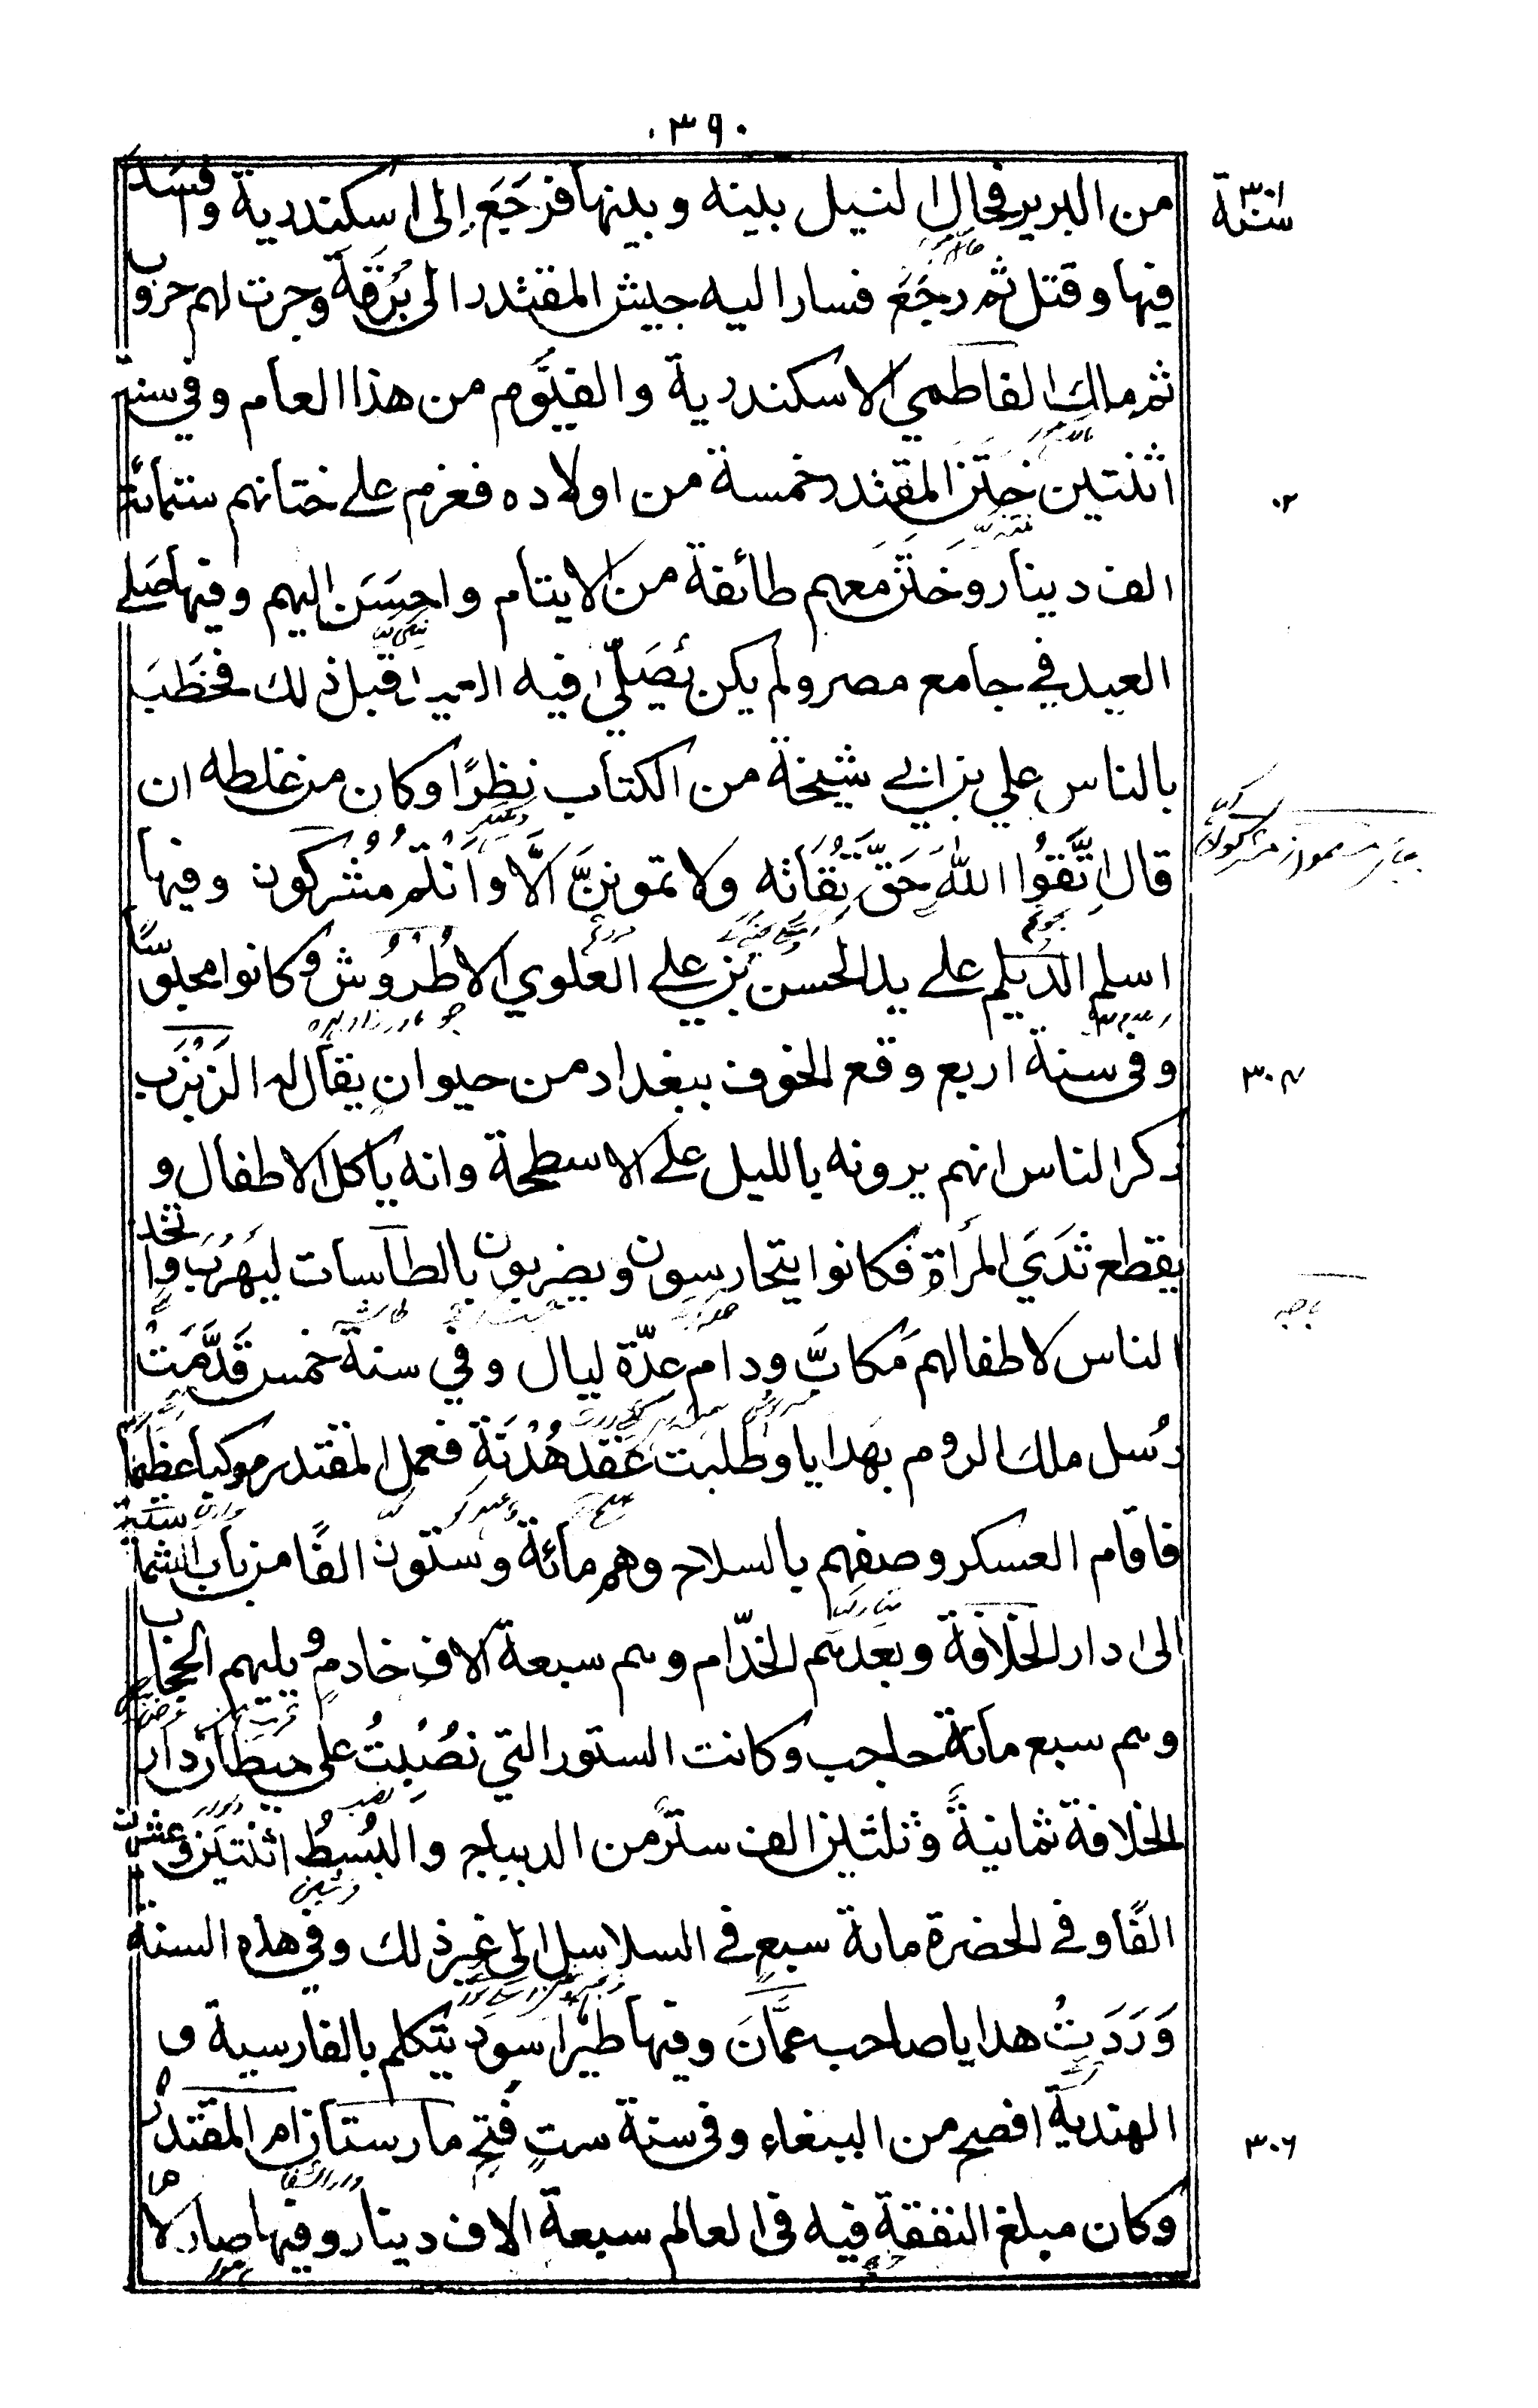 ٣٩٠
من البربر فحال النيل بينه وبينها فرَجَعَ إلى اسكندرية وافسَدَ
سنة ٣٠١
فيها وقتل ثم رجَعَ فسار اليه جيش المقتدر الى بُرْقَةَ وجرت لهم حروب
ثم ملك الفاطمي الاسكندرية والفيّوم من هذا العام وفي سنة
اثنتين خَتَنَ المقتدر خمسة من اولاده فغرم على ختانهم ستمائة
٠٢
الف دينار وختن معهم طائفة من الايتام واحسَنَ اليهم وفيها صَلى
العيد في جامع مصر ولم يكن يُصَلّى فيه العيد قبل ذلك فخطَبَ
بالناس علي بن ابي شيخة من الكتاب نظرًا وكان من غلطه ان
قال اتَّقُوا اللهَ حَقَّ تُقَاتِه ولا تموتنَّ الَّا وَاَنْتُمْ مُشْرِكون وفيها
اسلم الديلم على يد الحسن بن علي العلوي الاُطْرُوش وكانوا مجوسًا
وفى سنة اربع وقع الخوف ببغداد من حيوانٍ يقال له الزَّبْزَب
٣٠٤
ذكر الناس انهم يرونه بالليل على الاسطحة وانه ياكل الاطفال و
يقطع ثدَيَ المرأة فكانوا يتحارسون ويضربون بالطاسات ليَهرُبَ واتخذ
الناس لاطفالهم مَكابَّ ودام عدّة ليال وفي سنة خمس قَدَّمَتْ
رُسل ملك الروم بهَدايا وطلبَت عَقْدَ هُدْنَةٍ فعمل المقتدر موكبا عظيمًا
فاقام العسكر وصفهم بالسلاح وهم مائة وستون الفًا من باب الشماسية
الى دار الخلافة وبعدهم الخدّام وهم سبعة الاف خادم ويليهم الحجاب
وهم سبع مائة حاجب وكانت الستور التي نُصِبَتْ على حيطان دار
الخلافة ثمانيةً وثلثين الف سترٍ من الديباج والبُسُطُ اثنتين وعشرين
الفًا وفى الحضرة مائة سبعٍ في السلاسل الى غير ذلك وفي هذه السنة
وَرَدَتْ هدايا صاحب عمَّانَ وفيها طيرٌ اسود يتكلم بالفارسية و
الهندية افصح من الببغاء وفى سنة ستٍ فُتِحَ مارستان ام المقتدر
٣٠٦
وكان مبلغ النفقة فيه فى العالم سبعة الاف دينار وفيها صار الا